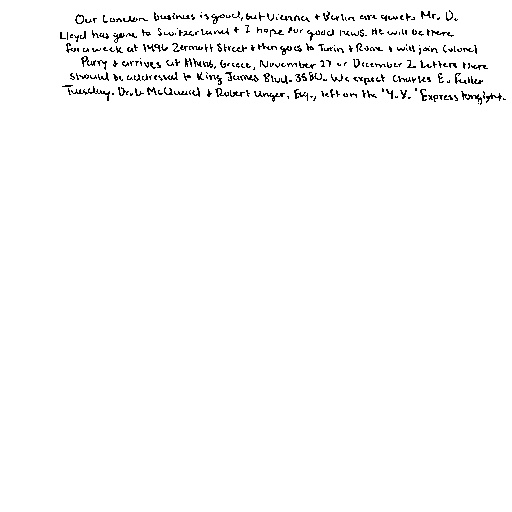 Our London business is good, but Vienna + Berlin are quiet. Mr. D.
Lloyd has gone to Switzerland + I hope for good news. He will be there
for a week at 1496 Zermott Street + then goes to Turin + Rome + will join Colonel
Parry + arrives at Athens, Greece, November 27 or December 2. Letters there
should be addressed to King James Blvd. 3580. We expect Charles E. Fuller
Tuesday. Dr. L. McQuaid + Robert Unger, Esq., left on the "Y.X." Express tonight.